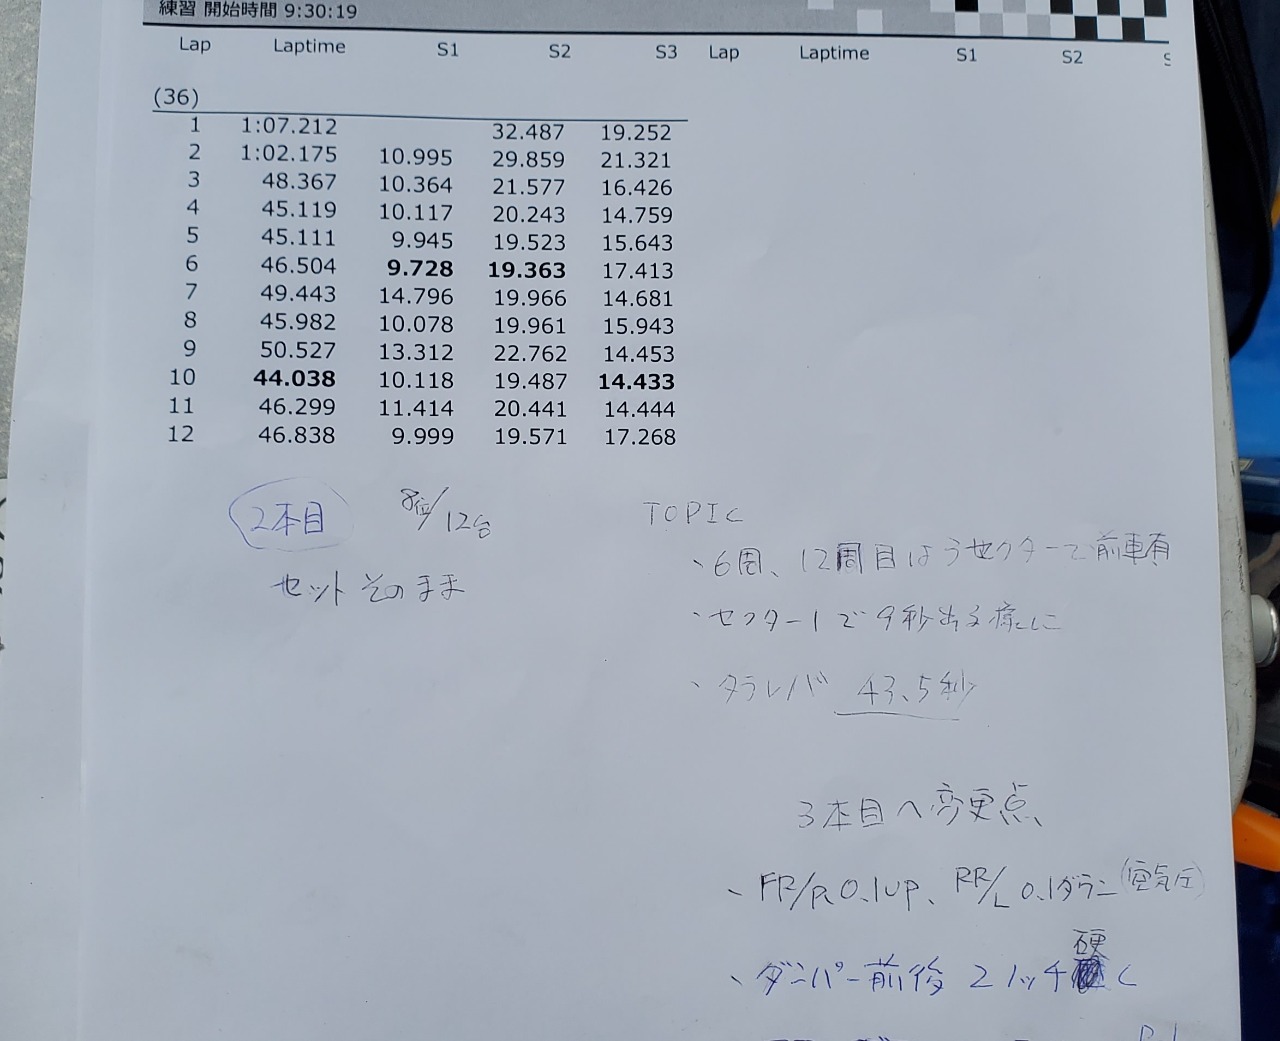 練習 開始時間 9:30:19
Lap Laptime S1 S2 S3 Lap Laptime S1 S2
(36)
1 1:07.212 32.487 19.252
2 1:02.175 10.995 29.859 21.321
3 48.367 10.364 21.577 16.426
4 45.119 10.117 20.243 14.759
5 45.111 9.945 19.523 15.643
6 46.504 9.728 19.363 17.413
7 49.443 14.796 19.966 14.681
8 45.982 10.078 19.961 15.943
9 50.527 13.312 22.762 14.453
10 44.038 10.118 19.487 14.433
11 46.299 11.414 20.441 14.444
12 46.838 9.999 19.571 17.268
2本目 8位/12台
セットそのまま
TOPIC
・6周、12周目は3セクターで前車有
・セクター1で9秒出る様に
・タラレバ 43.5秒
3本目へ変更点
・FR/R 0.1up、RR/L 0.1ダウン(空気圧)
・ダンパー前後 2ノッチ硬く